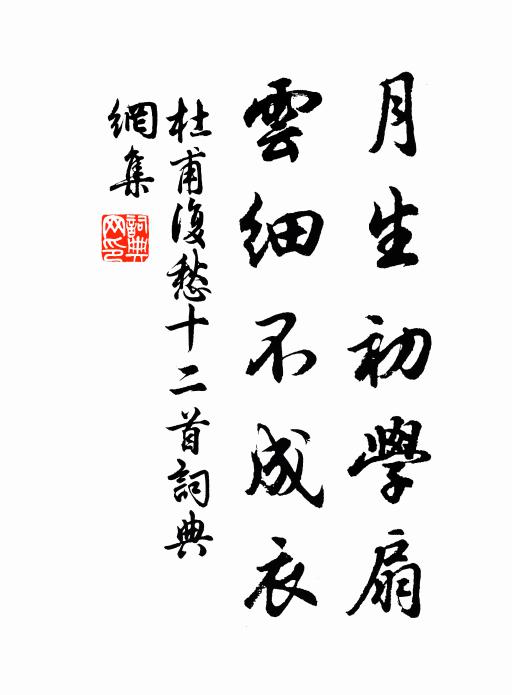 月生初學扇
雲細不成衣
杜甫復愁十二首詞典
網集
詞典
网印